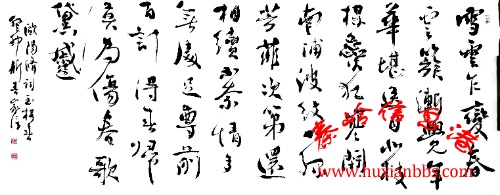 雪雲乍變春
雲簇漸覺年
華堪縱目北枝
梅蕊犯寒開
南浦波紋
芳菲次第還
相續不奈情多
無處足尊前
百計得春歸
莫為傷春歌
黛蹙
歐陽脩詞玉樓春
http://www.huxianbbs.com